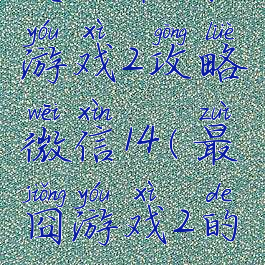 yóu xì gōng lüè
游戏2攻略
wēi xìn zuì
微信14(最
jiǒng yóu xì de
囧游戏2的